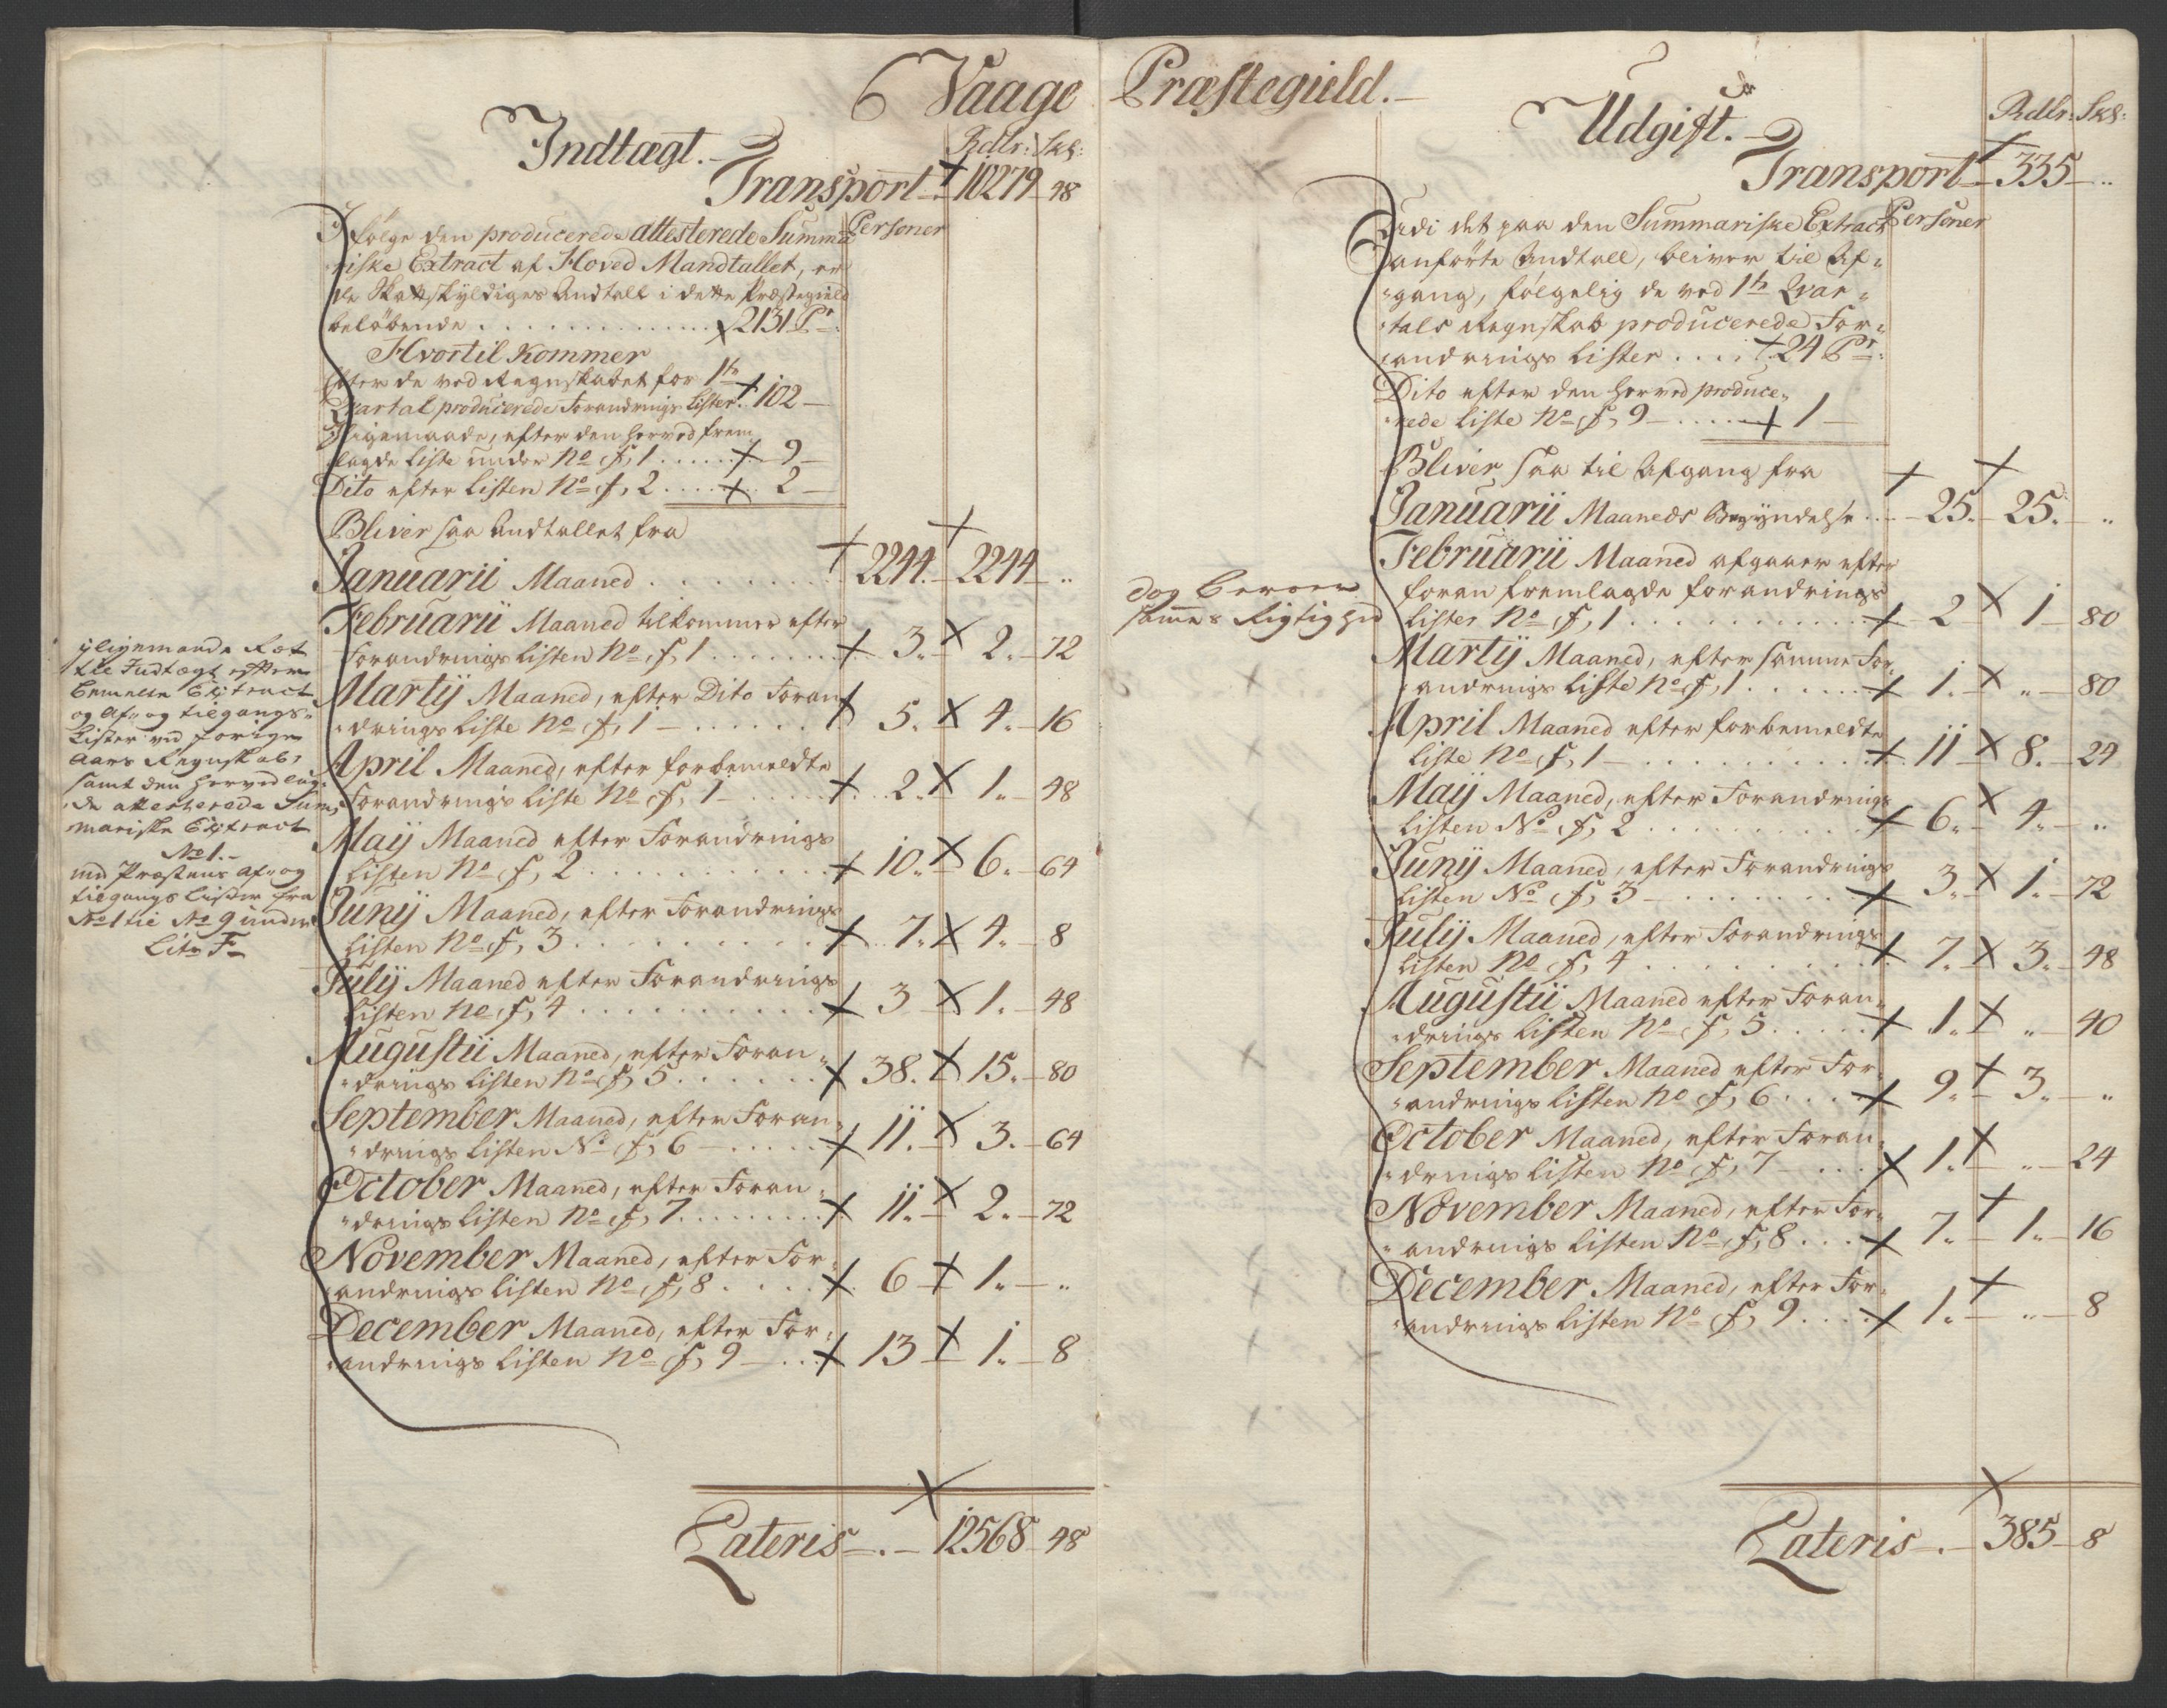 6 Vaage Præstegield.
Indtægt.
Rdlr: Skl:
Transport 10279 48
Personer
Ifølge den producerede attesterede Summa
riske Extract af Hoved Mandtallet, er
de Skattskyldiges Andtall i dette Præstegield
beløbende . . . . . . . . . 2131 Pr:
Hvortil kommer
Efter de ved Regnskabet for 1te
Qvartal producerede Forandrings Lister. 102
Ligemaade, efter den herved frem
lagde Liste under No f, 1 . . . . . 9
Dito efter Listen No f, 2 . . . . 2
Bliver saa Andtallet fra
Januarii Maaned . . . . . . . 2244. 2244 ..
Februarii Maaned tilkommer efter
Forandrings Listen No f, 1 . . . . . . 3. 2. 72
Martij Maaned, efter Dito Foran
drings Liste No f, 1 . . . . . . 5. 4. 16
April Maaned, efter forbemeldte
Forandrings Liste No f, 1 . . . . 2. 1. 48
Maij Maaned efter Forandrings
Listen No f, 2 . . . . . . . . . . 10. 6. 64
Junij Maaned, efter Forandrings
Listen No f, 3 . . . . . . . . . 7. 4. 8
Julij Maaned efter Forandrings
Listen No f, 4 . . . . . . . . . . 3 1. 48
Augustii Maaned, efter Foran„
„drings Listen No f, 5 . . . . . . 38. 15. 80
September Maaned, efter Foran„
„drings Listen No f, 6 . . . . . 11. 3. 64
October Maaned, efter Foran„
„drings Listen No f, 7 . . . . . . . 11. 2. 72
November Maaned, efter For„
andrings Listen No f, 8 . . . . . 6 1. ..
December Maaned, efter For„
andrings Listen No f, 9 . . . 13 1. 8
Lateris 12568 48
ligemaade Ræt
til Indtægt efter
bemelte Extract
og Af- og tilgangs-
Lister ved forige
Aars Regnskab,
samt den herved lag
de attesterede Sum„
mariske Extract
No 1.
med Præstens Af- og
tilgangs Lister fra
No 1 til No 9 under
Litr F
Udgift.
Rdlr: Skl:
Transport 335 ..
Personer
Endi det paa den Summariske Extract
anførte Andtall, bliver til Af„
„gang, følgelig de ved 1te Qvar„
„tals Regnskab producerede For„
„andrings Lister . . . . 24 Pr:
Dito efter den herved produce„
„rede Liste No f, 9 . . . . 1
Bliver saa til Afgang fra
Januarii Maaneds Begyndelse . . . 25. 25. ..
Februarii Maaned afgaaer efter
foran fremlagde forandrings
Lister No f, 1 . . . . . . . . . . 2 1 80
Martij Maaned, efter samme For„
„andrings Liste No f, 1 . . . . . . 1. .. 80
April Maaned efter forbemeldte
Liste No f, 1 . . . . . . . . . 11 8. 24
Maij Maaned, efter Forandrings
Listen No f, 2 . . . . . . . . . 6. 4. ..
Junij Maaned, efter Forandrings
Listen No f, 3 . . . . . . . . 3. 1. 72
Julij Maaned, efter Forandrings
Listen No f, 4 . . . . . . . . . 7. 3. 48
Augustii Maaned efter Foran„
„drings Listen No f, 5 . . . . . 1. .. 40
September Maaned efter For„
„andrings Listen No f, 6 . . . . 9. 3. ..
October Maaned, efter Foran„
„drings Listen No f, 7 . . . . 1. .. 24
November Maaned, efter For„
„andrings Listen No f, 8 . . . 7. 1. 16
December Maaned, efter For„
„andrings Listen No f, 9 . . . . 1. .. 8
Lateris 385 8
dog beroer
sammes Rigtighed